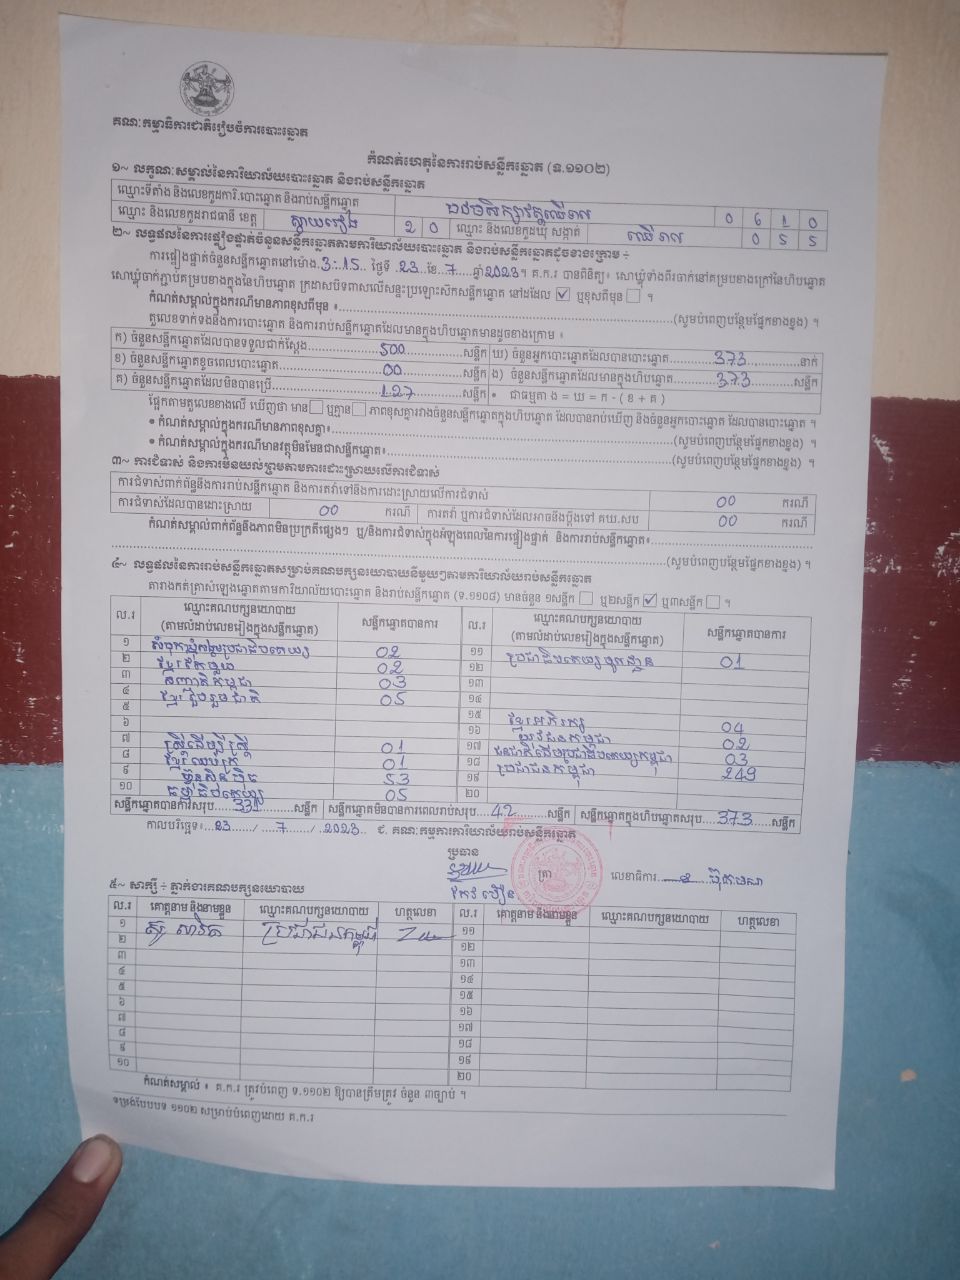 គណៈកម្មាធិការជាតិរៀបចំការបោះឆ្នោត
កំណត់ហេតុនៃការរាប់សន្លឹកឆ្នោត (ទ.១១០២)
១~ លក្ខណៈសម្គាល់នៃការិយាល័យបោះឆ្នោត និងរាប់សន្លឹកឆ្នោត
ឈ្មោះទីតាំង និងលេខកូដការិ.បោះឆ្នោត និងរាប់សន្លឹកឆ្នោត បឋមសិក្សាវត្តឈើទាល 0 6 1 0
ឈ្មោះ និងលេខកូដរាជធានី ខេត្ត ស្វាយរៀង 2 0 ឈ្មោះ និងលេខកូដឃុំ សង្កាត់ ឈើទាល 0 5 5
២~ លទ្ធផលនៃការផ្ទៀងផ្ទាត់ចំនួនសន្លឹកឆ្នោតតាមការិយាល័យបោះឆ្នោត និងរាប់សន្លឹកឆ្នោតដូចខាងក្រោម ÷
ការផ្ទៀងផ្ទាត់ចំនួនសន្លឹកឆ្នោតនៅម៉ោង.3:15.. ថ្ងៃទី .23..ខែ..7.....ឆ្នាំ2023.. គ.ក.រ បានពិនិត្យ៖ សោឃ្លុំទាំងពីរចាក់នៅគម្របខាងក្រៅនៃហិបឆ្នោត
សោឃ្លុំចាក់ភ្ជាប់គម្របខាងក្នុងនៃហិបឆ្នោត ក្រដាសបិទពាសលើសន្ទះប្រឡោះសិកសន្លឹកឆ្នោត នៅដដែល ☑ ឬខុសពីមុន ☐ ។
កំណត់សម្គាល់ក្នុងករណីមានភាពខុសពីមុន ៖..........(សូមបំពេញបន្ថែមផ្នែកខាងខ្នង) ។
តួលេខទាក់ទងនឹងការបោះឆ្នោត និងការរាប់សន្លឹកឆ្នោតដែលមានក្នុងហិបឆ្នោតមានដូចខាងក្រោម ៖
ក) ចំនួនសន្លឹកឆ្នោតដែលបានទទួលជាក់ស្តែង.....500.....សន្លឹក ឃ) ចំនួនអ្នកបោះឆ្នោតដែលបានបោះឆ្នោត.....373.....នាក់
ខ) ចំនួនសន្លឹកឆ្នោតខូចពេលបោះឆ្នោត.....00.....សន្លឹក ង) ចំនួនសន្លឹកឆ្នោតដែលមានក្នុងហិបឆ្នោត.....373.....សន្លឹក
គ) ចំនួនសន្លឹកឆ្នោតដែលមិនបានប្រើ.....127.....សន្លឹក • ជាធម្មតា ង = ឃ = ក - ( ខ + គ )
ផ្អែកតាមតួលេខខាងលើ ឃើញថា មាន ☐ ឬគ្មាន ☐ ភាពខុសគ្នារវាងចំនួនសន្លឹកឆ្នោតក្នុងហិបឆ្នោត ដែលបានរាប់ឃើញ និងចំនួនអ្នកបោះឆ្នោត ដែលបានបោះឆ្នោត ។
• កំណត់សម្គាល់ក្នុងករណីមានភាពខុសគ្នា៖..........(សូមបំពេញបន្ថែមផ្នែកខាងខ្នង) ។
• កំណត់សម្គាល់ក្នុងករណីមានវត្ថុមិនមែនជាសន្លឹកឆ្នោត៖..........(សូមបំពេញបន្ថែមផ្នែកខាងខ្នង) ។
៣~ ការជំទាស់ និងការមិនយល់ព្រមតាមការដោះស្រាយលើការជំទាស់
ការជំទាស់ពាក់ព័ន្ធនឹងការរាប់សន្លឹកឆ្នោត និងការតវ៉ាទៅនឹងការដោះស្រាយលើការជំទាស់ 00 ករណី
ការជំទាស់ដែលបានដោះស្រាយ 00 ករណី ការតវ៉ា ឬការជំទាស់ដែលអាចនឹងប្តឹងទៅ គឃ.សប 00 ករណី
កំណត់សម្គាល់ពាក់ព័ន្ធនឹងភាពមិនប្រក្រតីផ្សេងៗ ឬ/និងការជំទាស់ក្នុងអំឡុងពេលនៃការផ្ទៀងផ្ទាត់ និងការរាប់សន្លឹកឆ្នោត៖..........
..........(សូមបំពេញបន្ថែមផ្នែកខាងខ្នង) ។
៤~ លទ្ធផលនៃការរាប់សន្លឹកឆ្នោតសម្រាប់គណបក្សនយោបាយនីមួយៗតាមការិយាល័យរាប់សន្លឹកឆ្នោត
តារាងកត់ត្រាសំឡេងឆ្នោតតាមការិយាល័យបោះឆ្នោត និងរាប់សន្លឹកឆ្នោត (ទ.១១០៨) មានចំនួន ១សន្លឹក ☐ ឬ២សន្លឹក ☑ ឬ៣សន្លឹក ☐ ។
ល.រ ឈ្មោះគណបក្សនយោបាយ (តាមលំដាប់លេខរៀងក្នុងសន្លឹកឆ្នោត) សន្លឹកឆ្នោតបានការ ល.រ ឈ្មោះគណបក្សនយោបាយ (តាមលំដាប់លេខរៀងក្នុងសន្លឹកឆ្នោត) សន្លឹកឆ្នោតបានការ
១ សំបុកឃ្មុំសង្គមប្រជាធិបតេយ្យ 02 ១១ ប្រជាធិបតេយ្យមូលដ្ឋាន 01
២ ខ្មែរតែមួយ 02 ១២
៣ សញ្ជាតិកម្ពុជា 03 ១៣
៤ ខ្មែររួបរួមជាតិ 05 ១៤
៥ ១៥ ខ្មែរអភិរក្ស 04
៦ ១៦ យុវជនកម្ពុជា 02
៧ ស្រ្តីដើម្បីស្រ្តី 01 ១៧ ជនជាតិដើមប្រជាធិបតេយ្យកម្ពុជា 03
៨ ខ្មែរឈប់ក្រ 01 ១៨ ប្រជាជនកម្ពុជា 249
៩ ហ៊្វុនស៊ិនប៉ិច 53 ១៩
១០ ធម្មាធិបតេយ្យ 05 ២០
សន្លឹកឆ្នោតបានការសរុប.....331.....សន្លឹក សន្លឹកឆ្នោតមិនបានការពេលរាប់សរុប....42.....សន្លឹក សន្លឹកឆ្នោតក្នុងហិបឆ្នោតសរុប....373.....សន្លឹក
កាលបរិច្ឆេទ៖...23...../.....7...../..2023.. ជ. គណៈកម្មការការិយាល័យរាប់សន្លឹកឆ្នោត
ប្រធាន
ត្រា លេខាធិការ
កែវ បឿន
៥~ សាក្សី ÷ ភ្នាក់ងារគណបក្សនយោបាយ
ល.រ គោត្តនាម និងនាមខ្លួន ឈ្មោះគណបក្សនយោបាយ ហត្ថលេខា ល.រ គោត្តនាម និងនាមខ្លួន ឈ្មោះគណបក្សនយោបាយ ហត្ថលេខា
១ ស៊ូ សាវិត ប្រជាជនកម្ពុជា ១១
២ ១២
៣ ១៣
៤ ១៤
៥ ១៥
៦ ១៦
៧ ១៧
៨ ១៨
៩ ១៩
១០ ២០
កំណត់សម្គាល់ ៖ គ.ក.រ ត្រូវបំពេញ ទ.១១០២ ឱ្យបានត្រឹមត្រូវ ចំនួន ៣ច្បាប់ ។
ទម្រង់បែបបទ ១១០២ សម្រាប់បំពេញដោយ គ.ក.រ